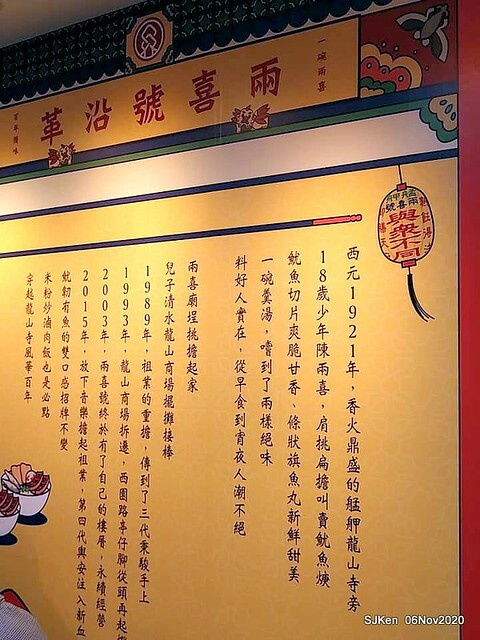 一碗兩喜
兩喜號沿革
百年精味
艋舺
兩喜號
與眾不同
西元1921年，香火鼎盛的艋舺龍山寺旁
18歲少年陳兩喜，肩挑扁擔叫賣魷魚焿
魷魚切片爽脆甘香、條狀旗魚丸新鮮甜美
一碗羹湯，嚐到了兩樣絕味
料好人實在，從早食到宵夜人潮不絕
兩喜廟埕挑擔起家
兒子清水龍山商場擺攤接棒
1989年，祖業的重擔，傳到了三代秉駿手上
1993年，龍山商場拆遷，西園路亭仔腳從頭再起
2003年，兩喜號終於有了自己的樓厝，永續經營
2015年，放下音樂擔起祖業，第四代與安注入新血
魷韌有魚的雙口感招牌不變
米粉炒滷肉飯也是必點
穿越龍山寺風華百年
SJKen 06Nov2020